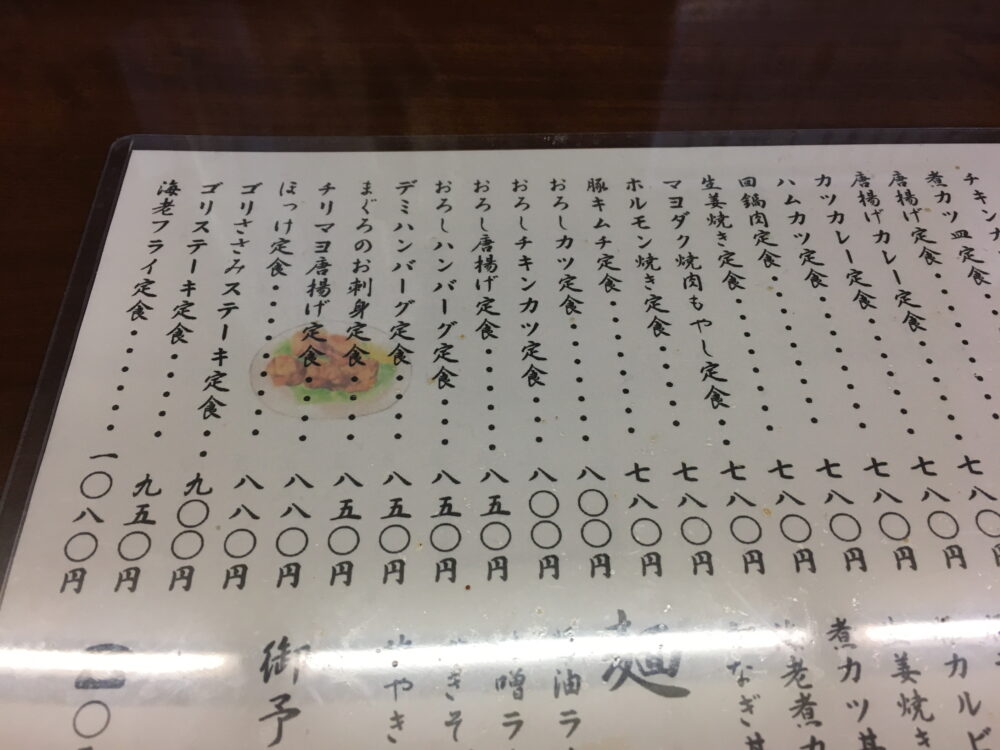 チキンカ
煮カツ皿定食
唐揚げ定食
唐揚げカレー定食・・・・・七八〇
カツカレー定食・・・・・・七八〇円
ハムカツ定食・・・・・・・七八〇円
回鍋肉定食・・・・・・・・七八〇円
生姜焼き定食・・・・・・・七八〇円
マヨダク焼肉もやし定食・・七八〇円
ホルモン焼き定食・・・・・七八〇円
豚キムチ定食・・・・・・・七八〇円
おろしカツ定食・・・・・・八〇〇円
おろしチキンカツ定食・・・八〇〇円
おろし唐揚げ定食・・・・・八五〇円
おろしハンバーグ定食・・・八五〇円
デミハンバーグ定食・・・・八五〇円
まぐろのお刺身定食・・・・八五〇円
チリマヨ唐揚げ定食・・・・八八〇円
ほっけ定食・・・・・・・・八八〇円
ゴリささみステーキ定食・・九〇〇円
ゴリステーキ定食・・・・・九五〇円
海老フライ定食・・・・・・一〇八〇円
カルビ
姜焼き
煮カツ丼
老煮カ
なぎ丼
麺
油ラ
噌ラ
きそ
やき
御予